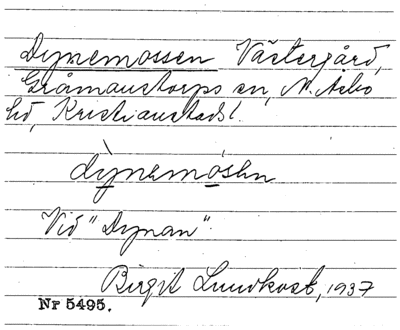 Dynemossen Västergård,
Gråmanstorps sn, N. Åsbo
hd, Kristianstads l.
dỳnemósen
Vid "Dynan".
Birgit Lundkvist, 1937
Nr 5495.